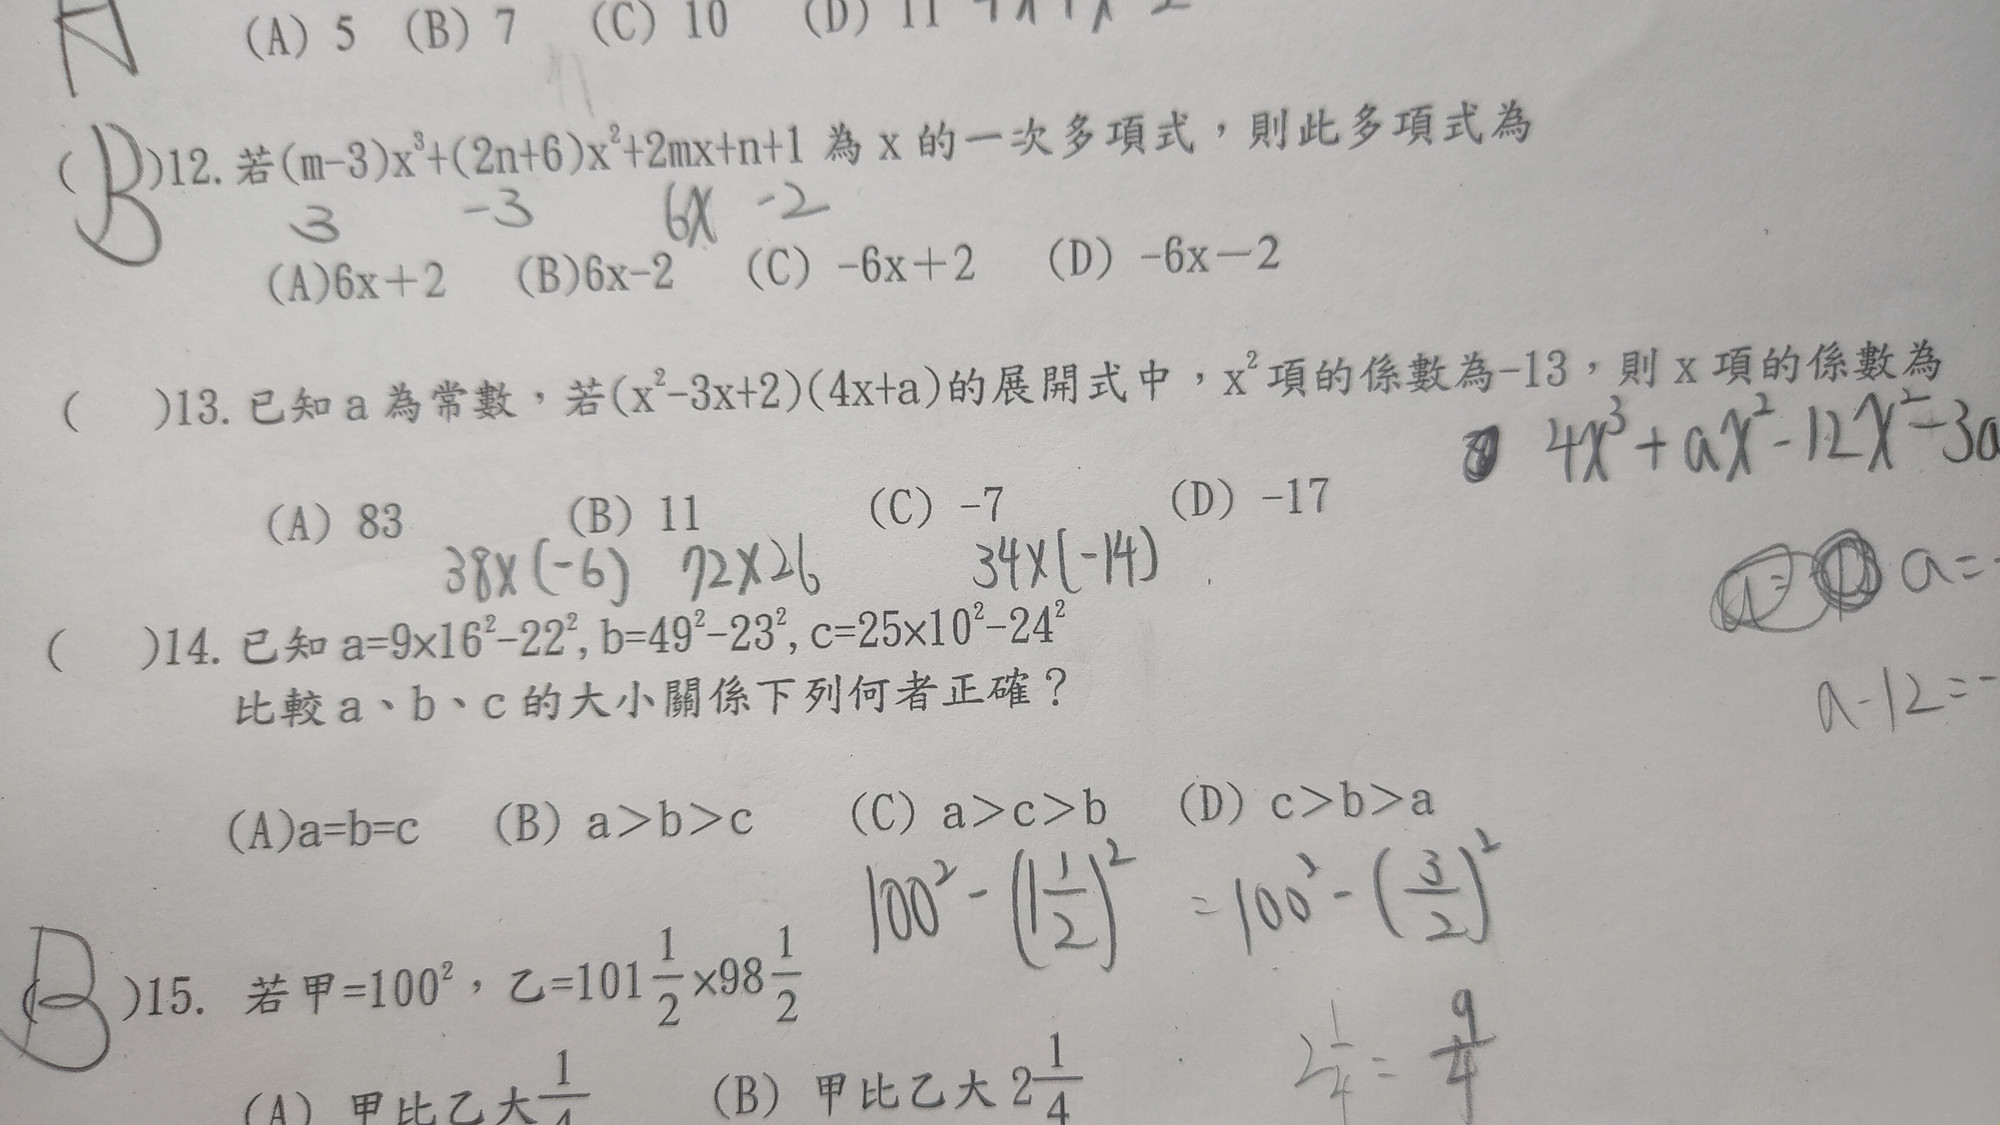 (A) 5 (B) 7 (C) 10 (D) 11
(B)12. 若(m-3)x³+(2n+6)x²+2mx+n+1 為 x 的一次多項式，則此多項式為
3 -3 6x -2
(A)6x＋2 (B)6x-2 (C) -6x＋2 (D) -6x－2
( )13. 已知 a 為常數，若(x²-3x+2)(4x+a)的展開式中，x²項的係數為-13，則 x 項的係數為
4x³+ax²-12x²-3a
(A) 83 (B) 11 (C) -7 (D) -17
38x(-6) 72x26 34x(-14)
a=-
( )14. 已知 a=9×16²-22², b=49²-23², c=25×10²-24²
比較 a、b、c 的大小關係下列何者正確？
a-12=-
(A)a=b=c (B) a＞b＞c (C) a＞c＞b (D) c＞b＞a
100²-(1 1/2)² =100²-(3/2)²
B )15. 若甲=100²，乙=101 1/2×98 1/2
2 1/4 = 9/4
(A) 甲比乙大 1/4 (B) 甲比乙大 2 1/4